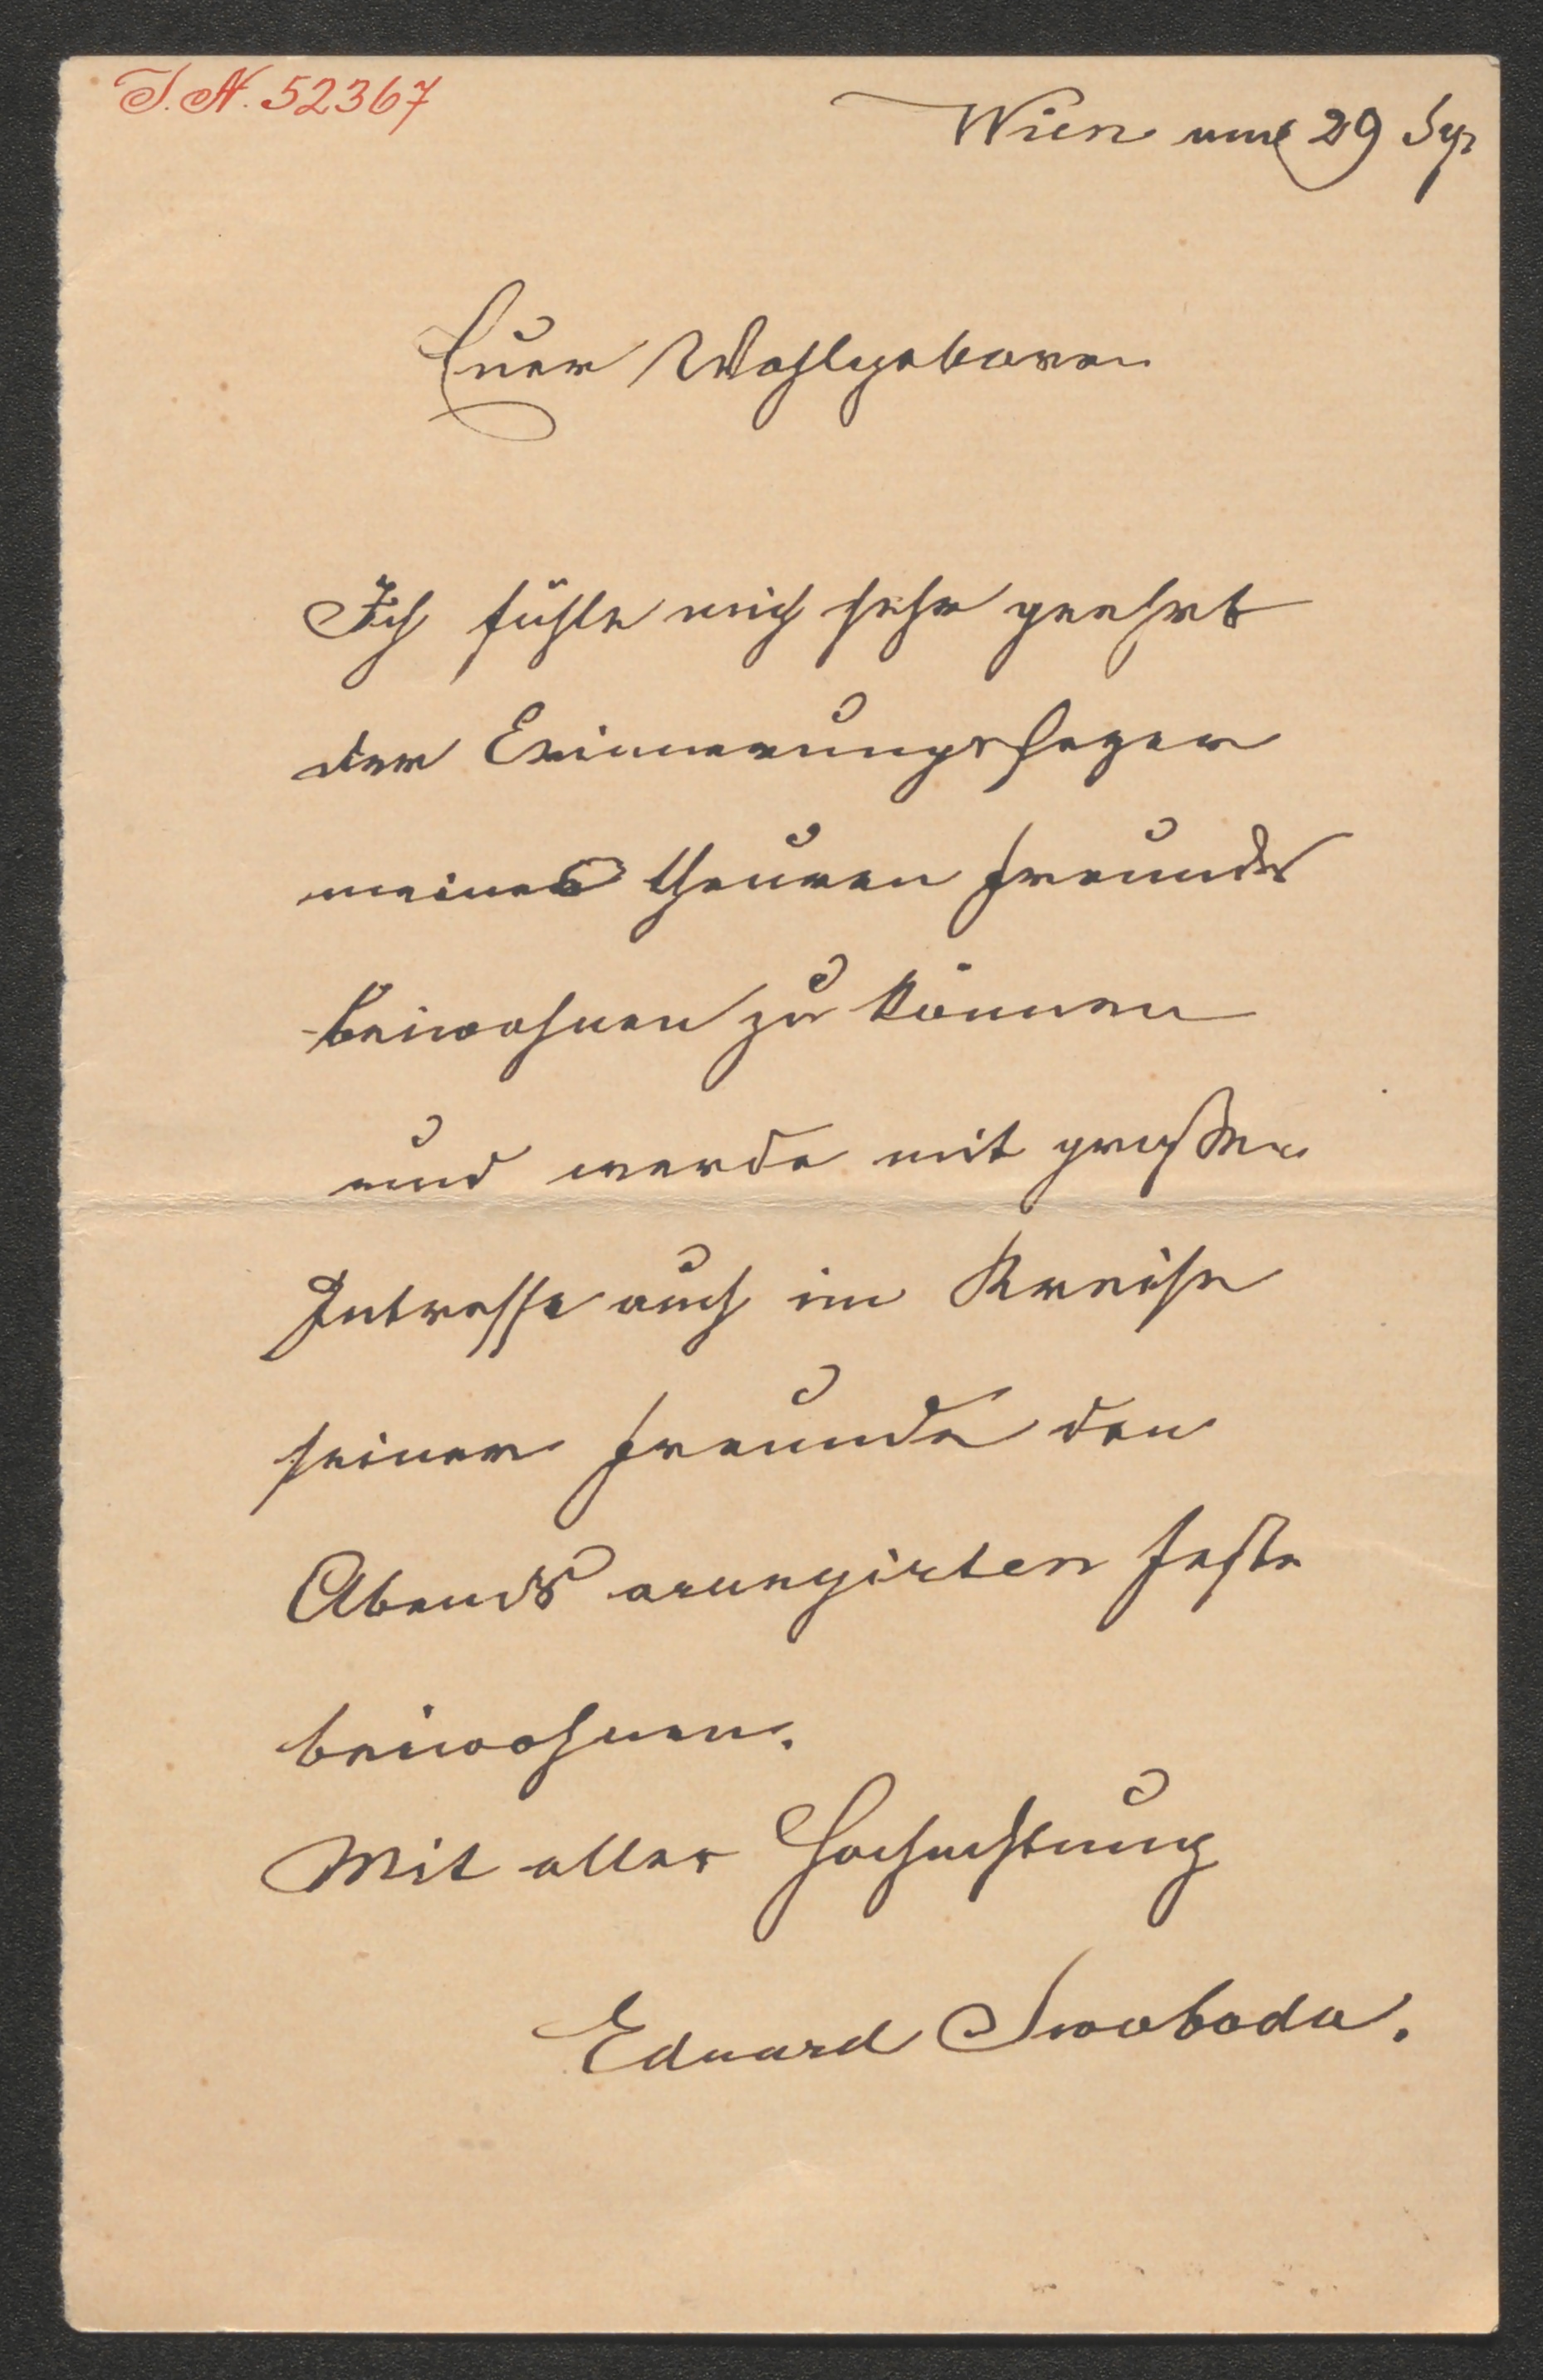 I. N. 52367
Wien am 29 Sep
Euer Wohlgeboren
Ich fühle mich sehr geehrt
der Erinnerungsfeyer
meines theuren Freundes
beiwohnen zu können
und werde mit großem
Intresse auch im Kreise
seiner Freunde den
Abends arangirten Feste
beiwohnen.
Mit aller Hochachtung
Eduard Swoboda.